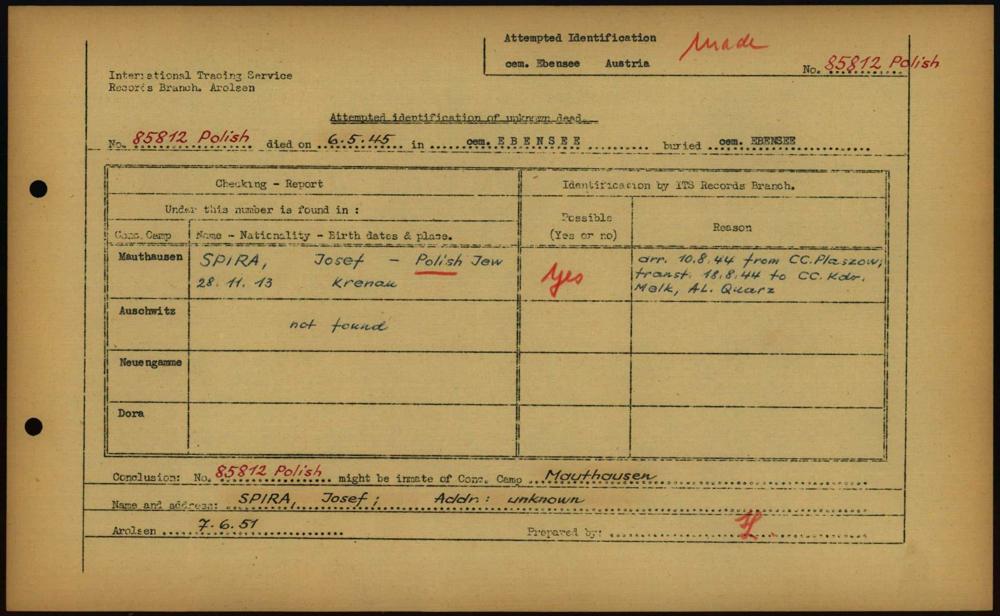 Attempted Identification
Made
cem. Ebensee Austria
No. 85812 Polish
International Tracing Service
Records Branch. Arolsen
Attempted identification of unknown dead.
No. 85812 Polish died on 6.5.45 in cem. EBENSEE buried cem. EBENSEE
Checking - Report
Identification by ITS Records Branch.
Under this number is found in :
Possible
(Yes or no)
Reason
Conc. Camp
Name - Nationality - Birth dates & place.
Mauthausen
SPIRA, Josef - Polish Jew
28.11.13 Krenau
Yes
arr. 10.8.44 from CC. Plaszow;
transf. 18.8.44 to CC. Kdr.
Melk, AL. Quarz
Auschwitz
not found
Neuengamme
Dora
Conclusion: No. 85812 Polish might be inmate of Conc. Camp Mauthausen
Name and address: SPIRA, Josef; Addr.: unknown
Arolsen 7.6.51
Prepared by: